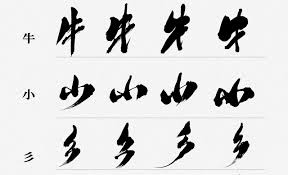 牛 牛 牛 牛 牛
小 小 小 小 小
彡 彡 彡 彡 彡